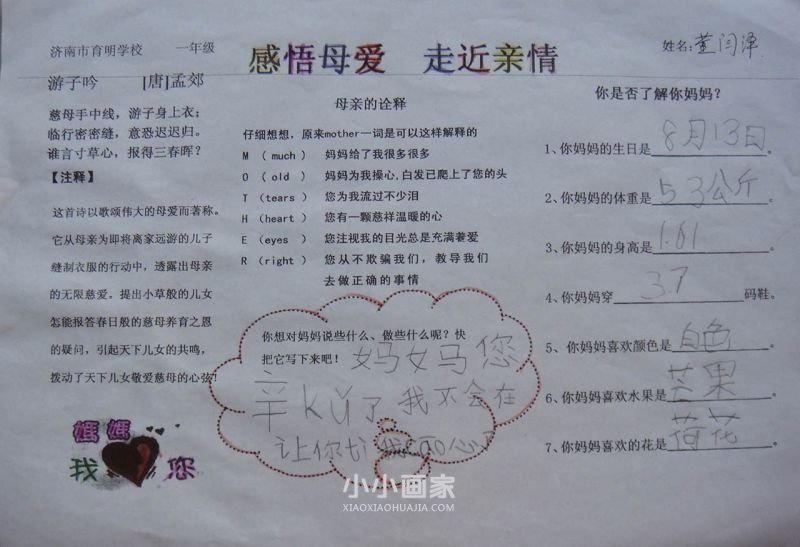 济南市育明学校 一年级
感悟母爱 走近亲情
姓名:
游子吟 [唐]孟郊
慈母手中线，游子身上衣；
临行密密缝，意恐迟迟归。
谁言寸草心，报得三春晖？
【注释】
这首诗以歌颂伟大的母爱而著称。
它从母亲为即将离家远游的儿子
缝制衣服的行动中，透露出母亲
的无限慈爱。提出小草般的儿女
怎能报答春日般的慈母养育之恩
的疑问，引起天下儿女的共鸣，
拨动了天下儿女敬爱慈母的心弦！
媽媽
我 您
母亲的诠释
仔细想想，原来mother一词是可以这样解释的
M （much） 妈妈给了我很多很多
O （old） 妈妈为我操心,白发已爬上了您的头
T （tears） 您为我流过不少泪
H （heart） 您有一颗慈祥温暖的心
E （eyes） 您注视我的目光总是充满着爱
R （right） 您从不欺骗我们，教导我们
去做正确的事情
你想对妈妈说些什么、做些什么呢？快
把它写下来吧！ 妈妈您
辛kǔ了我不会在
让你
你是否了解你妈妈？
1、你妈妈的生日是8月13日。
2、你妈妈的体重是53公斤。
3、你妈妈的身高是1.61。
4、你妈妈穿37码鞋。
5、你妈妈喜欢颜色是白色。
6、你妈妈喜欢水果是芒果。
7、你妈妈喜欢的花是荷花。
小小画家
XIAOXIAOHUAJIA.COM